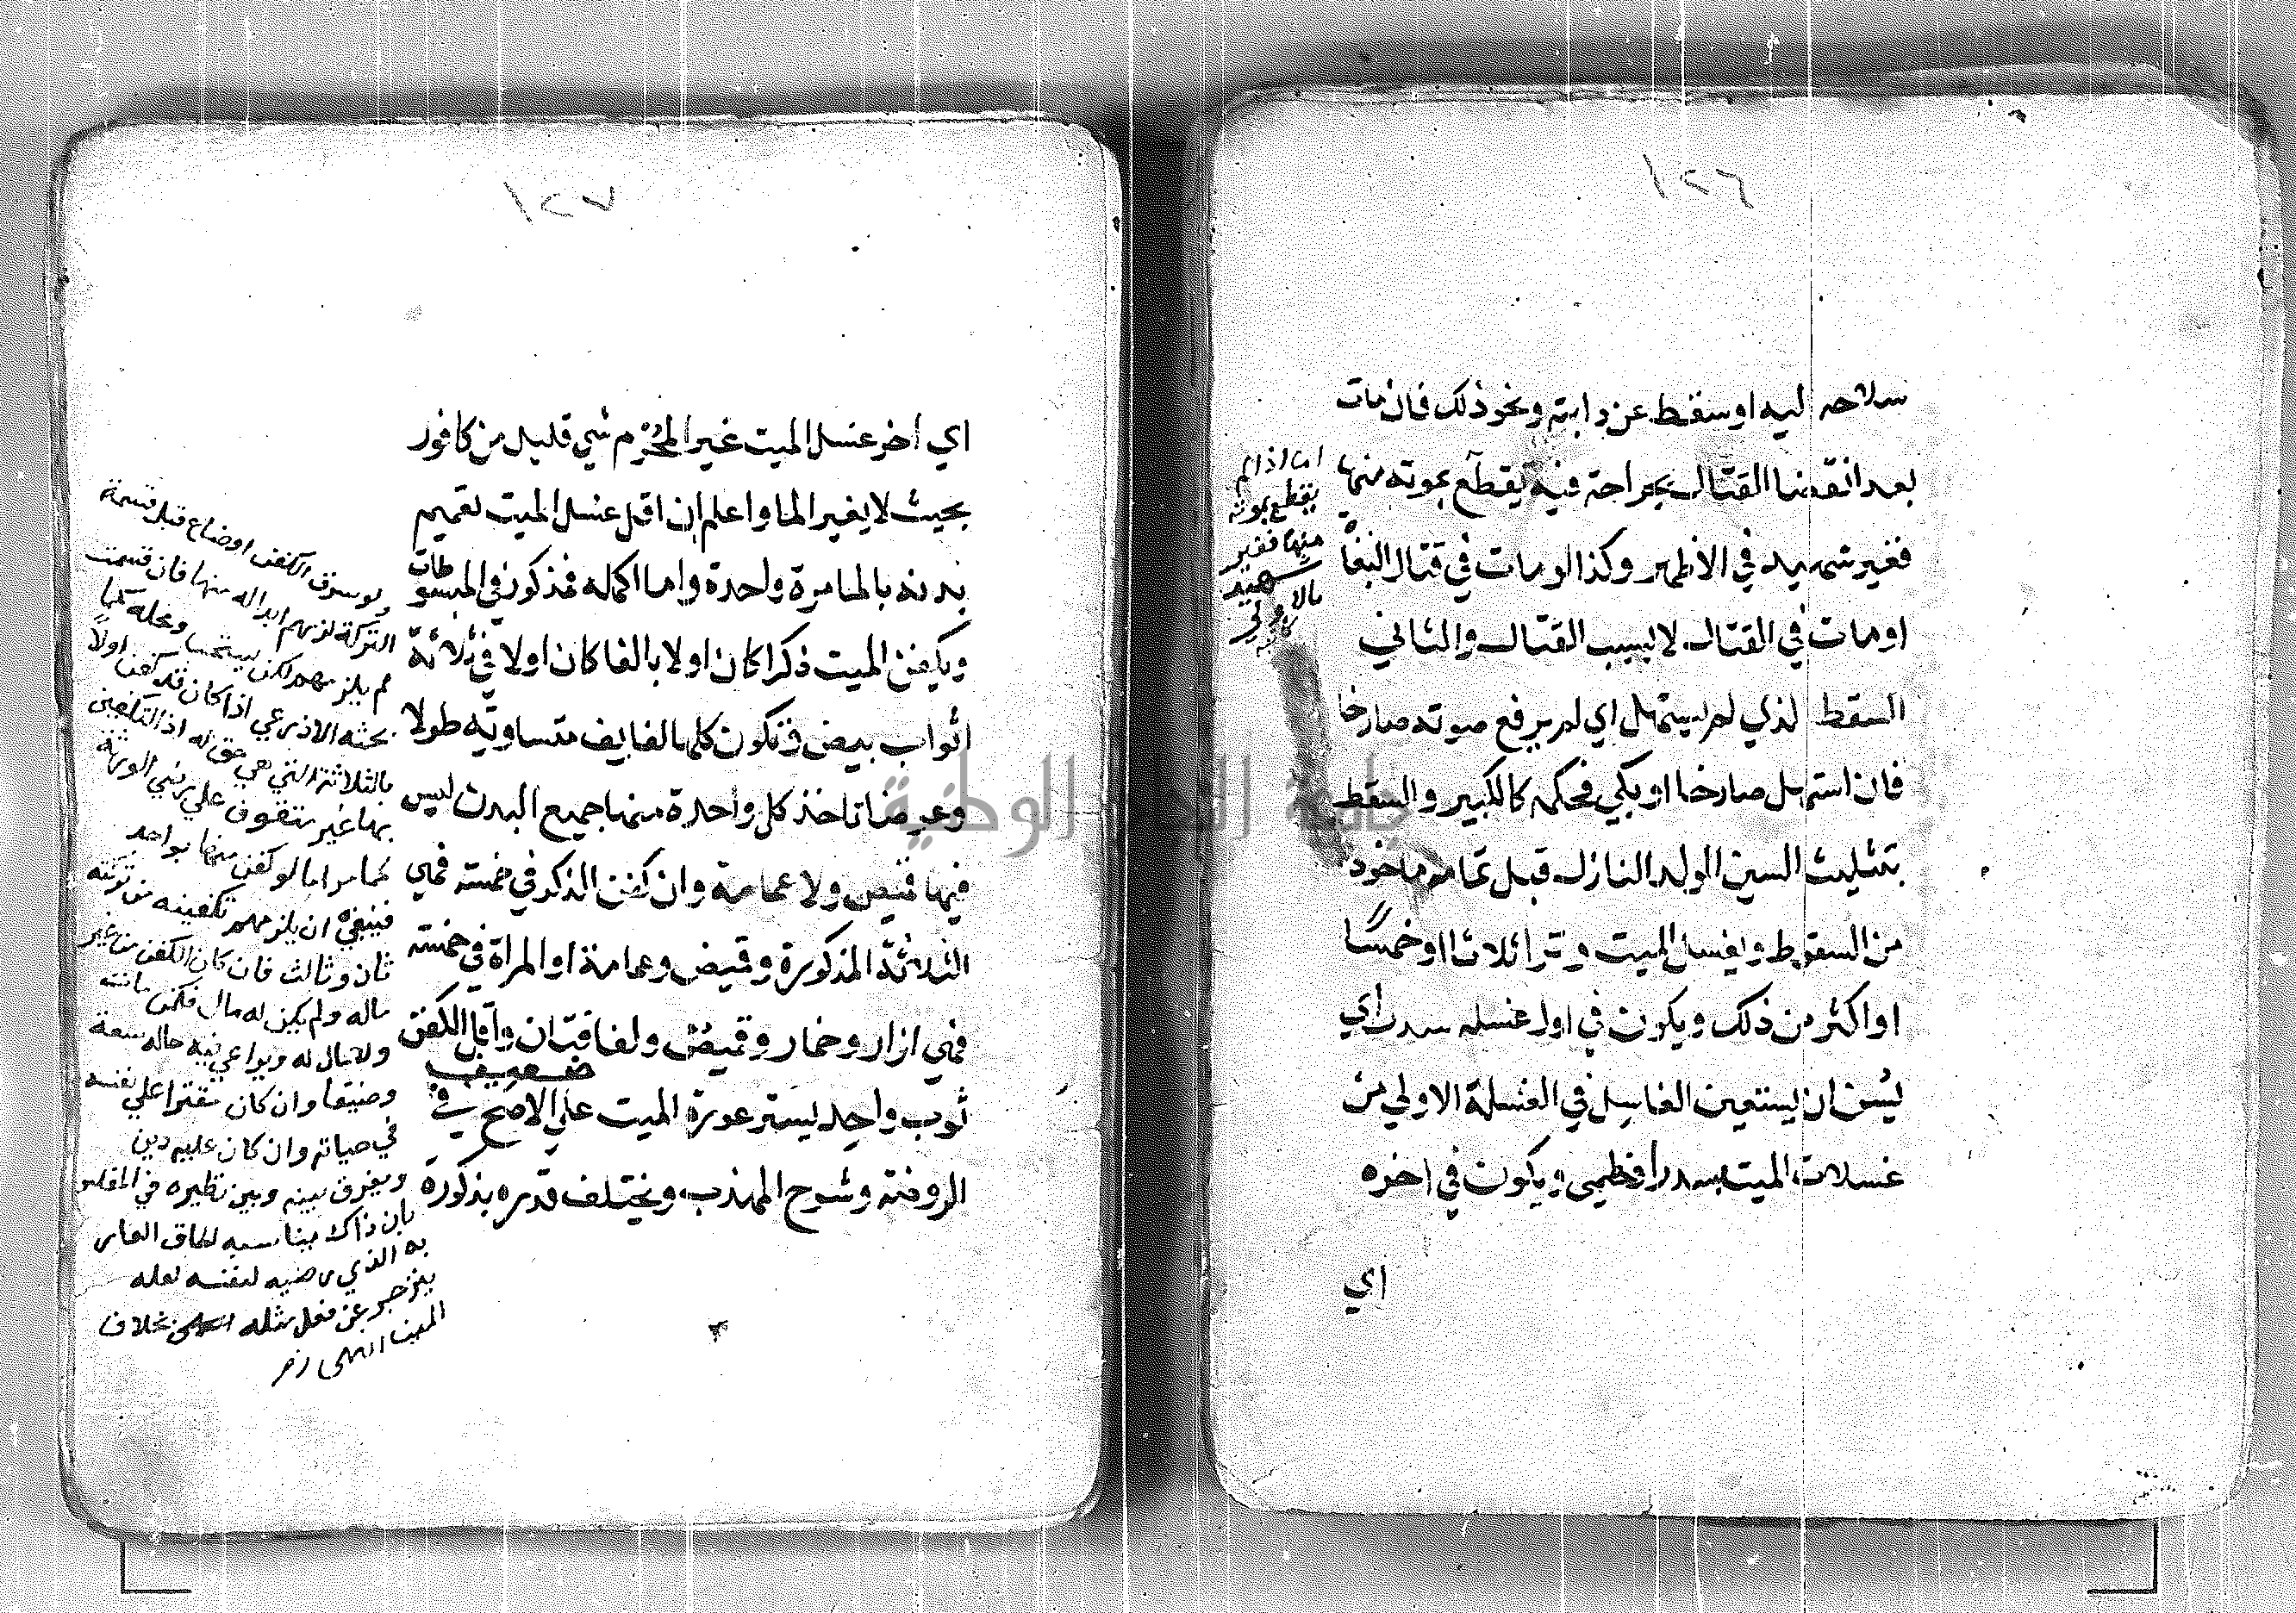 سلاحه اليه او سقط عن دابته ونحو ذلك فان مات
بعد انقضا القتال بجراحة فيه يقطع بموته منها
فغير شهيد في الاظهر وكذا لو مات في قتال البغاة
او مات في القتال لا بسبب القتال والثاني
السقط الذي لم يستهل اي لم يرفع صوته صارخا
فان استهل صارخا او بكي فحكمه كالكبير والسقط
بتثليث السين الولد النازل قبل تمامه ماخوذ
من السقوط ويغسل الميت وترا ثلاثا او خمسا
او اكثر من ذلك ويكون في اول غسله سدر اي
يسن ان يستعين الغاسل في الغسلة الاولي من
غسلات الميت بسدر او خطمي ويكون في اخره
اي
اما اذا لم
يقطع بموته
منها فغير
شهيد
بالاولي
اي اخر غسل الميت غير المحرم شي قليل من كافور
بحيث لا يغير الما واعلم ان اقل غسل الميت تعميم
بدنه بالما مرة واحدة واما اكمله فمذكور في المبسوطات
ويكفن الميت ذكرا كان اولا بالغا كان اولا في ثلاثة
اثواب بيض وتكون كلها لفايف متساوية طولا
وعرضا تاخذ كل واحدة منها جميع البدن ليس
فيها قميص ولا عمامة وان كفن الذكر في خمسة فهي
الثلاثة المذكورة وقميص وعمامة او المراة في خمسة
فهي ازار وخمار وقميص ولفافتان واقل الكفن
ضعيف
ثوب واحد يستر عورة الميت علي الاصح في
الروضة وشرح المهذب ويختلف قدره بذكورة
ولو سرق الكفن او ضاع قبل قسمة
التركة لزمهم ابداله منها فان قسمت
لم يلزمهم لكن يستحب ومحله كما
بحثه الاذرعي اذا كان قد كفن اولا
بالثلاثة التي هي حق له اذ التكفين
بها غير متوقف علي رضي الورثة
كما مر اما لو كفن منها بواحد
فينبغي ان يلزمهم تكفينه من تركته
ثان وثالث فان كان الكفن من غير
ماله ولم يكن له مال فكمن مات
ولا مال له ويراعي فيه حاله سعة
وضيقا وان كان مقترا علي نفسه
في حياته وان كان عليه دين
ويفرق بينه وبين نظيره في المفلس
بان ذاك يناسبه الحاق العار
به الذي رضيه لنفسه لعله
ينزجر عن فعل مثله بخلاف
الميت انتهي